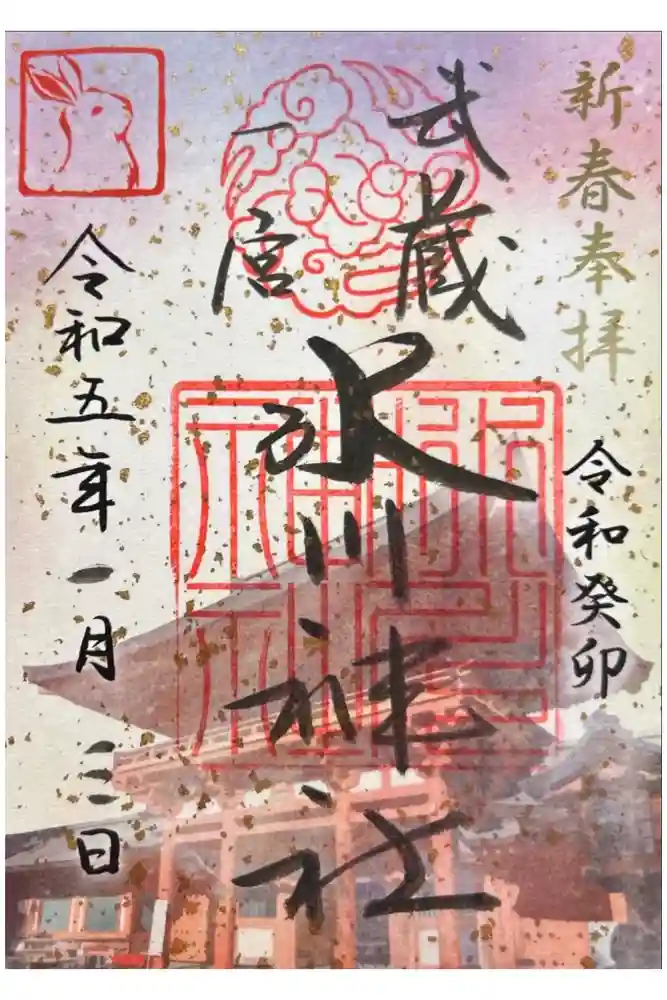 新春奉拝
令和癸卯
武蔵
一宮
氷川神社
令和五年一月三日